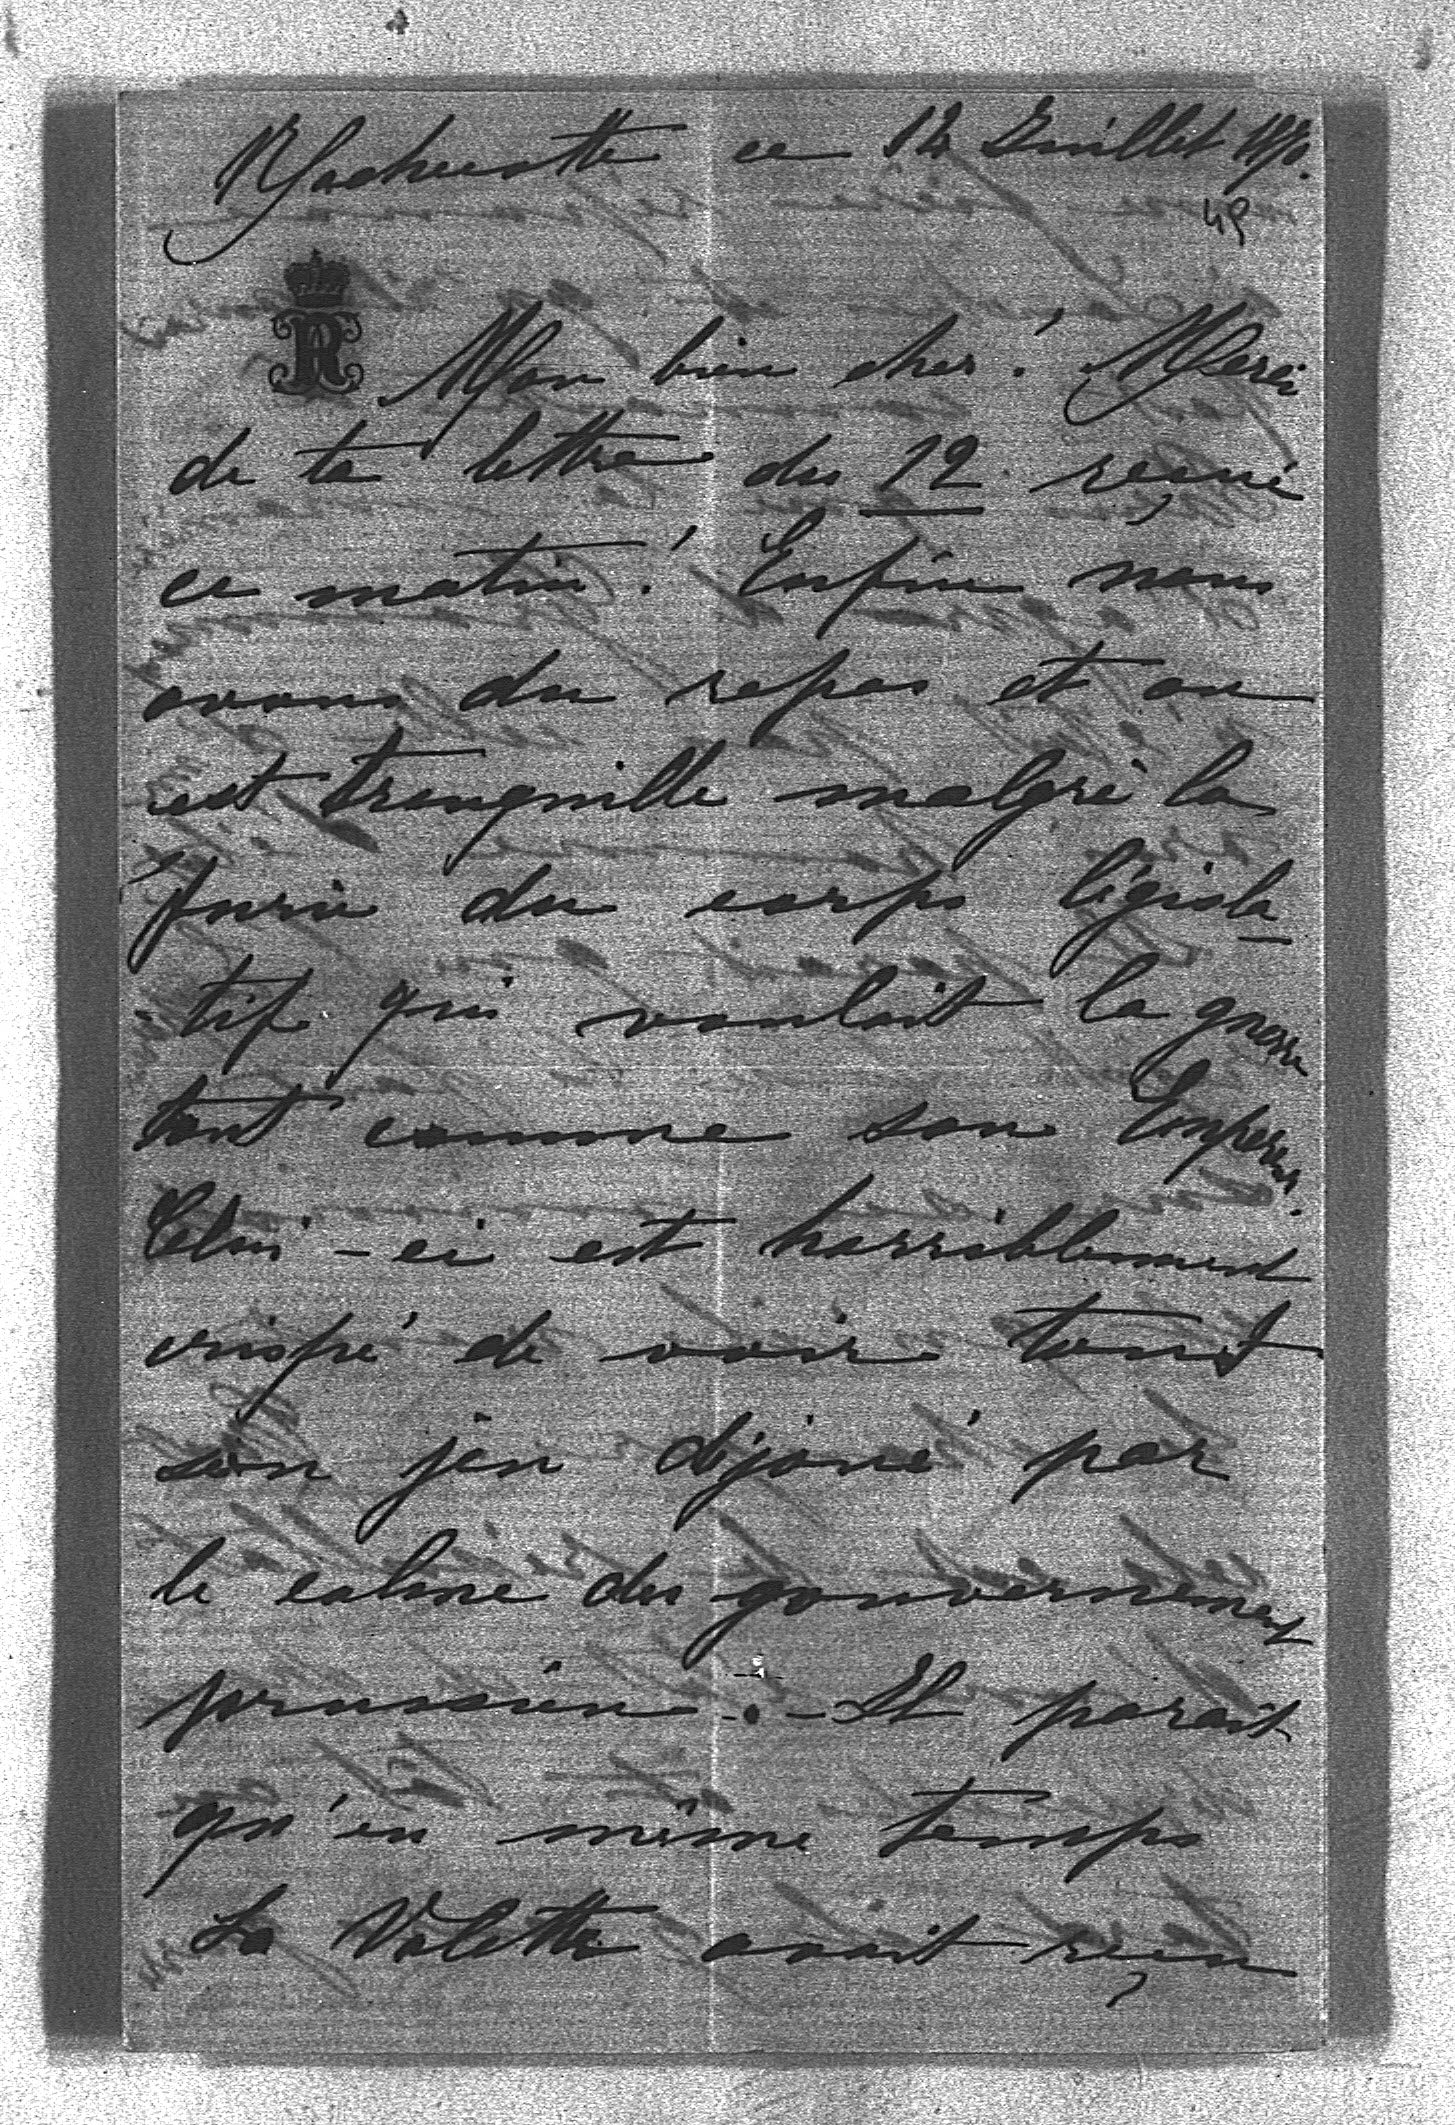 ce 14 Juillet 1870.
49
R
Mon bien cher! Merci
de ta lettre du 12 reçue
ce matin! Enfin nous
avons du repos et on
est tranquille malgré la
furie du corps législa-
-tif qui voulait la guerre
tout comme son Empereur.
Celui-ci est horriblement
crispé de voir tout
son jeu déjoué par
le calme du gouvernement
prussien. - Il parait
qu'en même temps
La Valette avait reçu